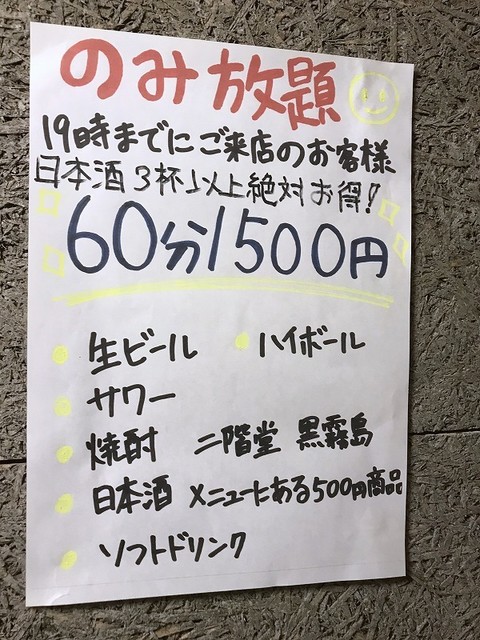 のみ放題
19時までにご来店のお客様
日本酒3杯以上絶対お得!
60分1500円
生ビール ハイボール
サワー
焼酎 二階堂 黒霧島
日本酒 メニューにある500円商品
ソフトドリンク